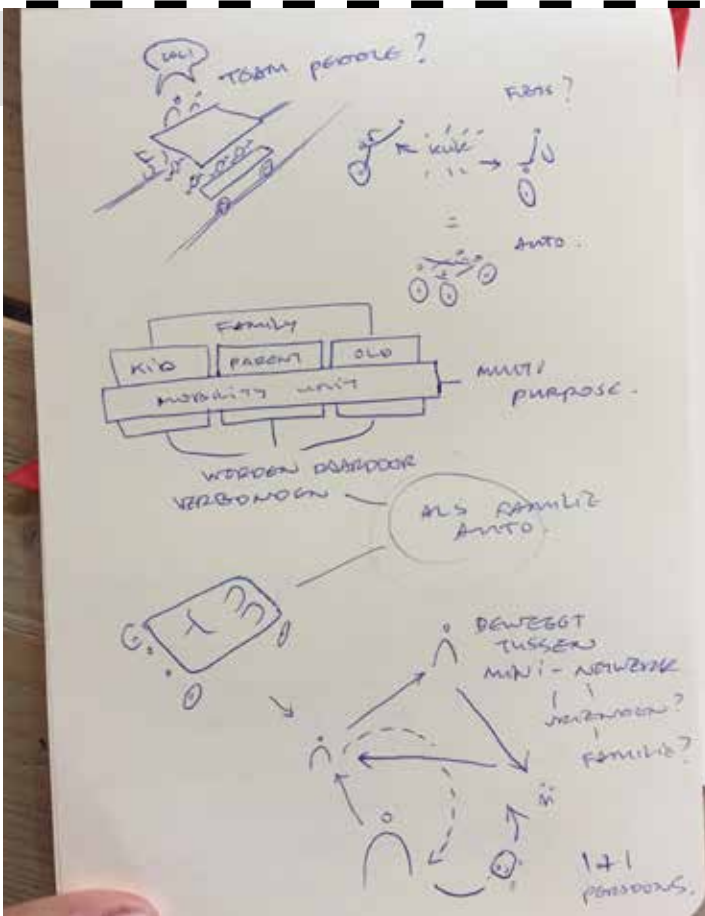 LOL!
TEAM PEOPLE?
FIETS?
KLIK
=
AUTO.
FAMILY
KID PARENT OLD
MOBILITY UNIT
MULTI
PURPOSE.
WORDEN DAARDOOR
VERBONDEN
ALS FAMILIE
AUTO.
BEWEEGT
TUSSEN
MINI-NETWERK
VRIENDEN?
FAMILIE?
1+1
PERSOONS.